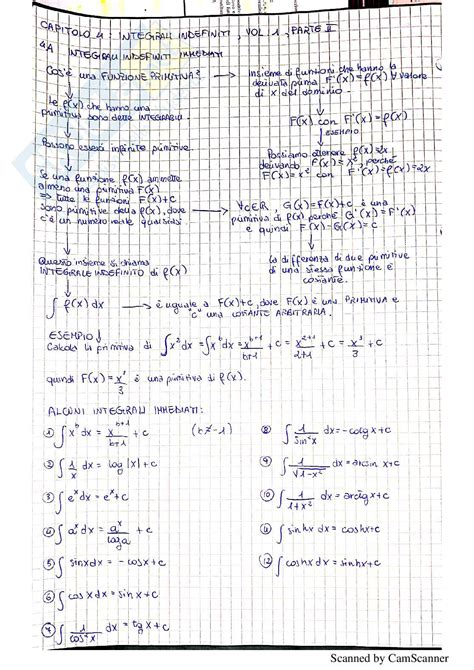 CAPITOLO 4: INTEGRALI INDEFINITI, VOL. 1, PARTE II
4A INTEGRALI INDEFINITI IMMEDIATI
Cos'è una FUNZIONE PRIMITIVA? → Insieme di funzioni che hanno la
derivata prima F'(x)=f(x) ∀ valore
di x del dominio.
Le f(x) che hanno una
primitiva sono dette INTEGRABILI.
F(x) con F'(x)=f(x)
ESEMPIO
Possono esserci infinite primitive.
Possiamo ottenere f(x)=2x
derivando F(x)=x², perché
F(x)=x² con F'(x)=f(x)=2x
Se una funzione f(x) ammette
almeno una primitiva F(x)
⇒ tutte le funzioni F(x)+c
sono primitive della f(x), dove
c è un numero reale qualsiasi
→ ∀c∈R, G(x)=F(x)+c è una
primitiva di f(x) perché G'(x)=F'(x)
e quindi F(x)-G(x)=c
Questo insieme si chiama
INTEGRALE INDEFINITO di f(x)
La differenza di due primitive
di una stessa funzione è
costante.
∫ f(x) dx → è uguale a F(x)+c, dove F(x) è una PRIMITIVA e
"c" una COSTANTE ARBITRARIA.
ESEMPIO
Calcola la primitiva di ∫x²dx = ∫x^b dx = x^(b+1)/(b+1) + c = x^(2+1)/(2+1) + c = x³/3 + c
quindi F(x) = x³/3 è una primitiva di f(x).
ALCUNI INTEGRALI IMMEDIATI:
① ∫ x^b dx = x^(b+1)/(b+1) + c (b≠-1)
② ∫ 1/x dx = log|x|+c
③ ∫ e^x dx = e^x+c
④ ∫ a^x dx = a^x/log a + c
⑤ ∫ sinx dx = -cosx+c
⑥ ∫ cosx dx = sinx+c
⑦ ∫ 1/cos²x dx = tgx+c
⑧ ∫ 1/sin²x dx = -cotgx+c
⑨ ∫ 1/√(1-x²) dx = arcsin x+c
⑩ ∫ 1/(1+x²) dx = arctgx+c
⑪ ∫ sinhx dx = coshx+c
⑫ ∫ coshx dx = sinhx+c
Scanned by CamScanner